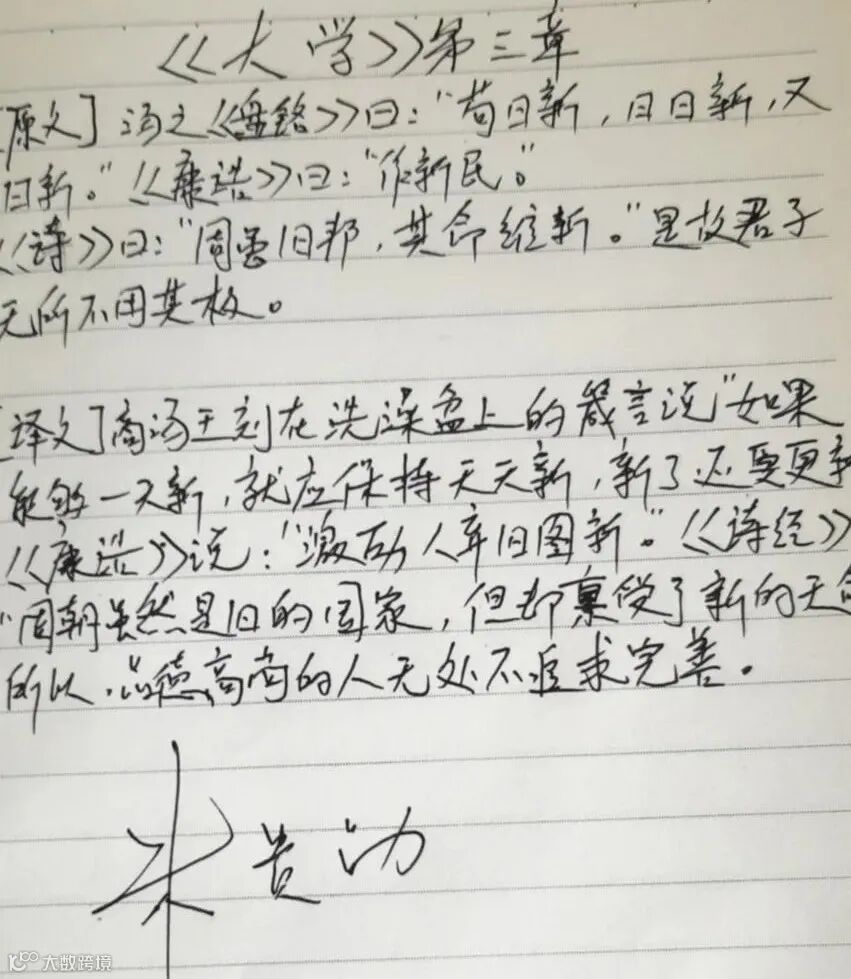 《大学》第三章
[原文] 汤之《盘铭》曰："苟日新，日日新，又
日新。"《康诰》曰："作新民。"
《诗》曰："周虽旧邦，其命维新。"是故君子
无所不用其极。
[译文]商汤王刻在洗澡盆上的箴言说"如果
能够一天新，就应保持天天新，新了还要更新
《康诰》说："激励人弃旧图新。"《诗经》
"周朝虽然是旧的国家，但却禀受了新的天命
所以，品德高尚的人无处不追求完善。
大数跨境